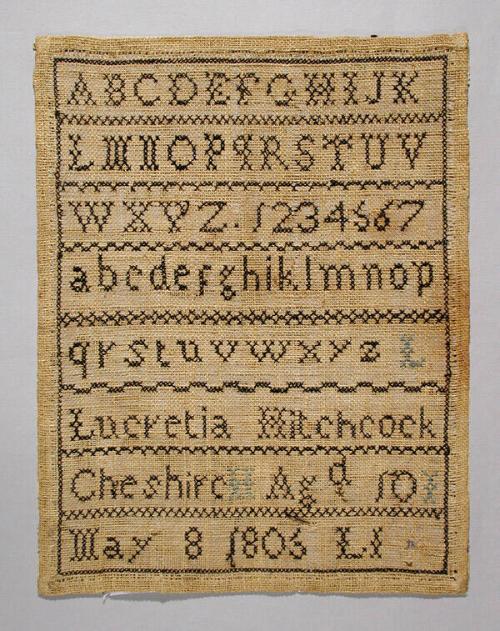 ABCDEFGHIJK
LMNOPQRSTUV
WXYZ. 1234567
abcdefghiklmnop
qrstuvwxyz
Lucretia Hitchcock
Cheshire Agd 10
May 8 1806